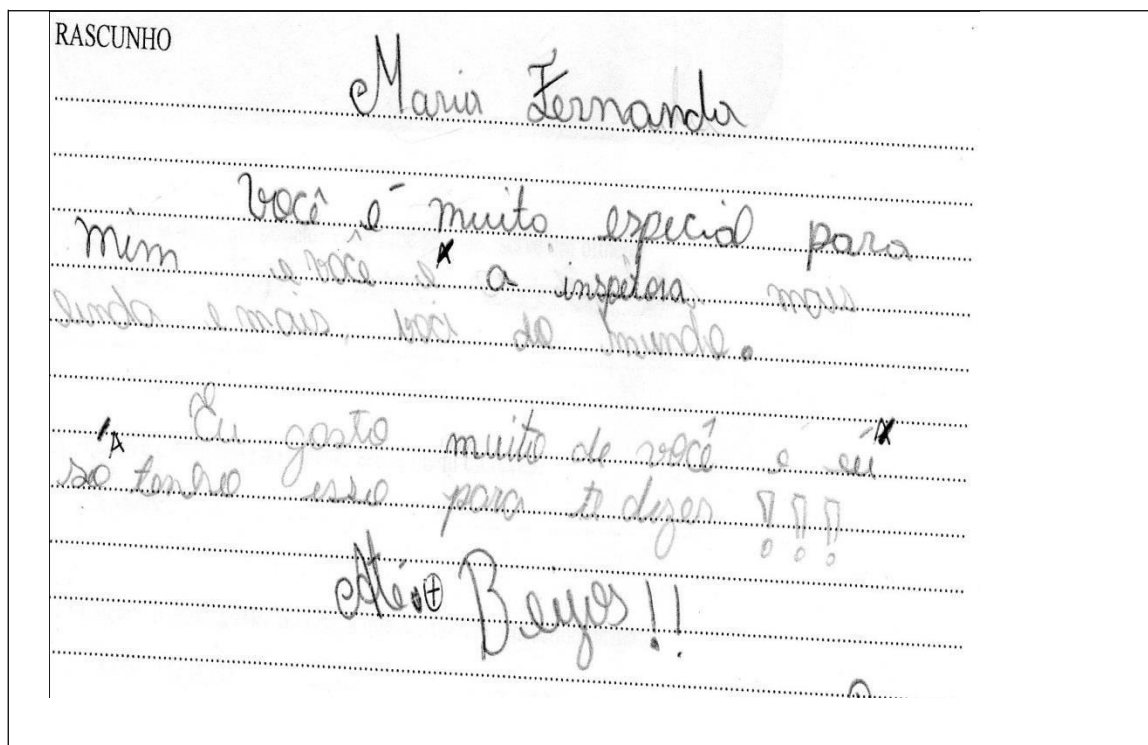 RASCUNHO
Maria Fernanda
Você é muito especial para
mim e você é a inspetora mais
linda e mais do mundo.
Eu gosto muito de você e eu
só tenho isso para te dizer !!!
Até + Beijos!!